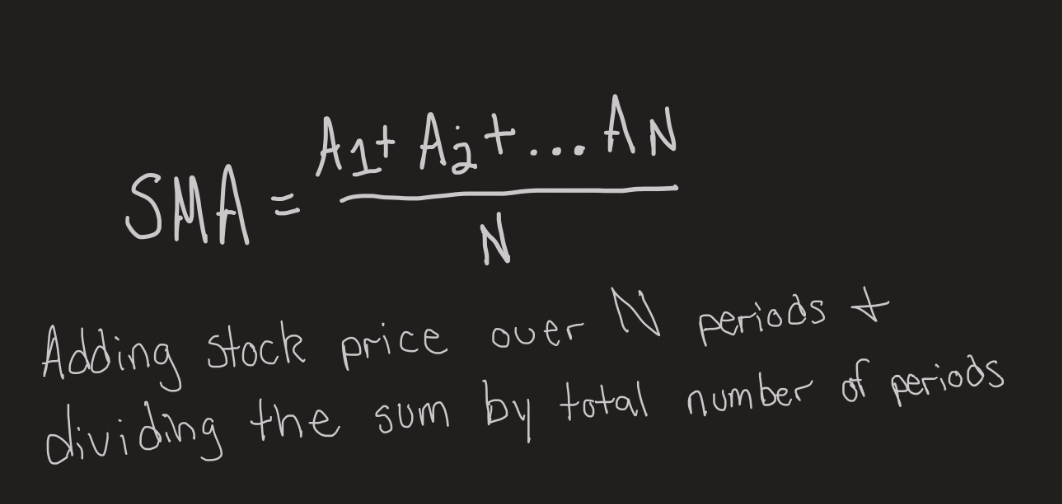 SMA = A1+ A2+...AN
N
Adding stock price over N periods +
dividing the sum by total number of periods